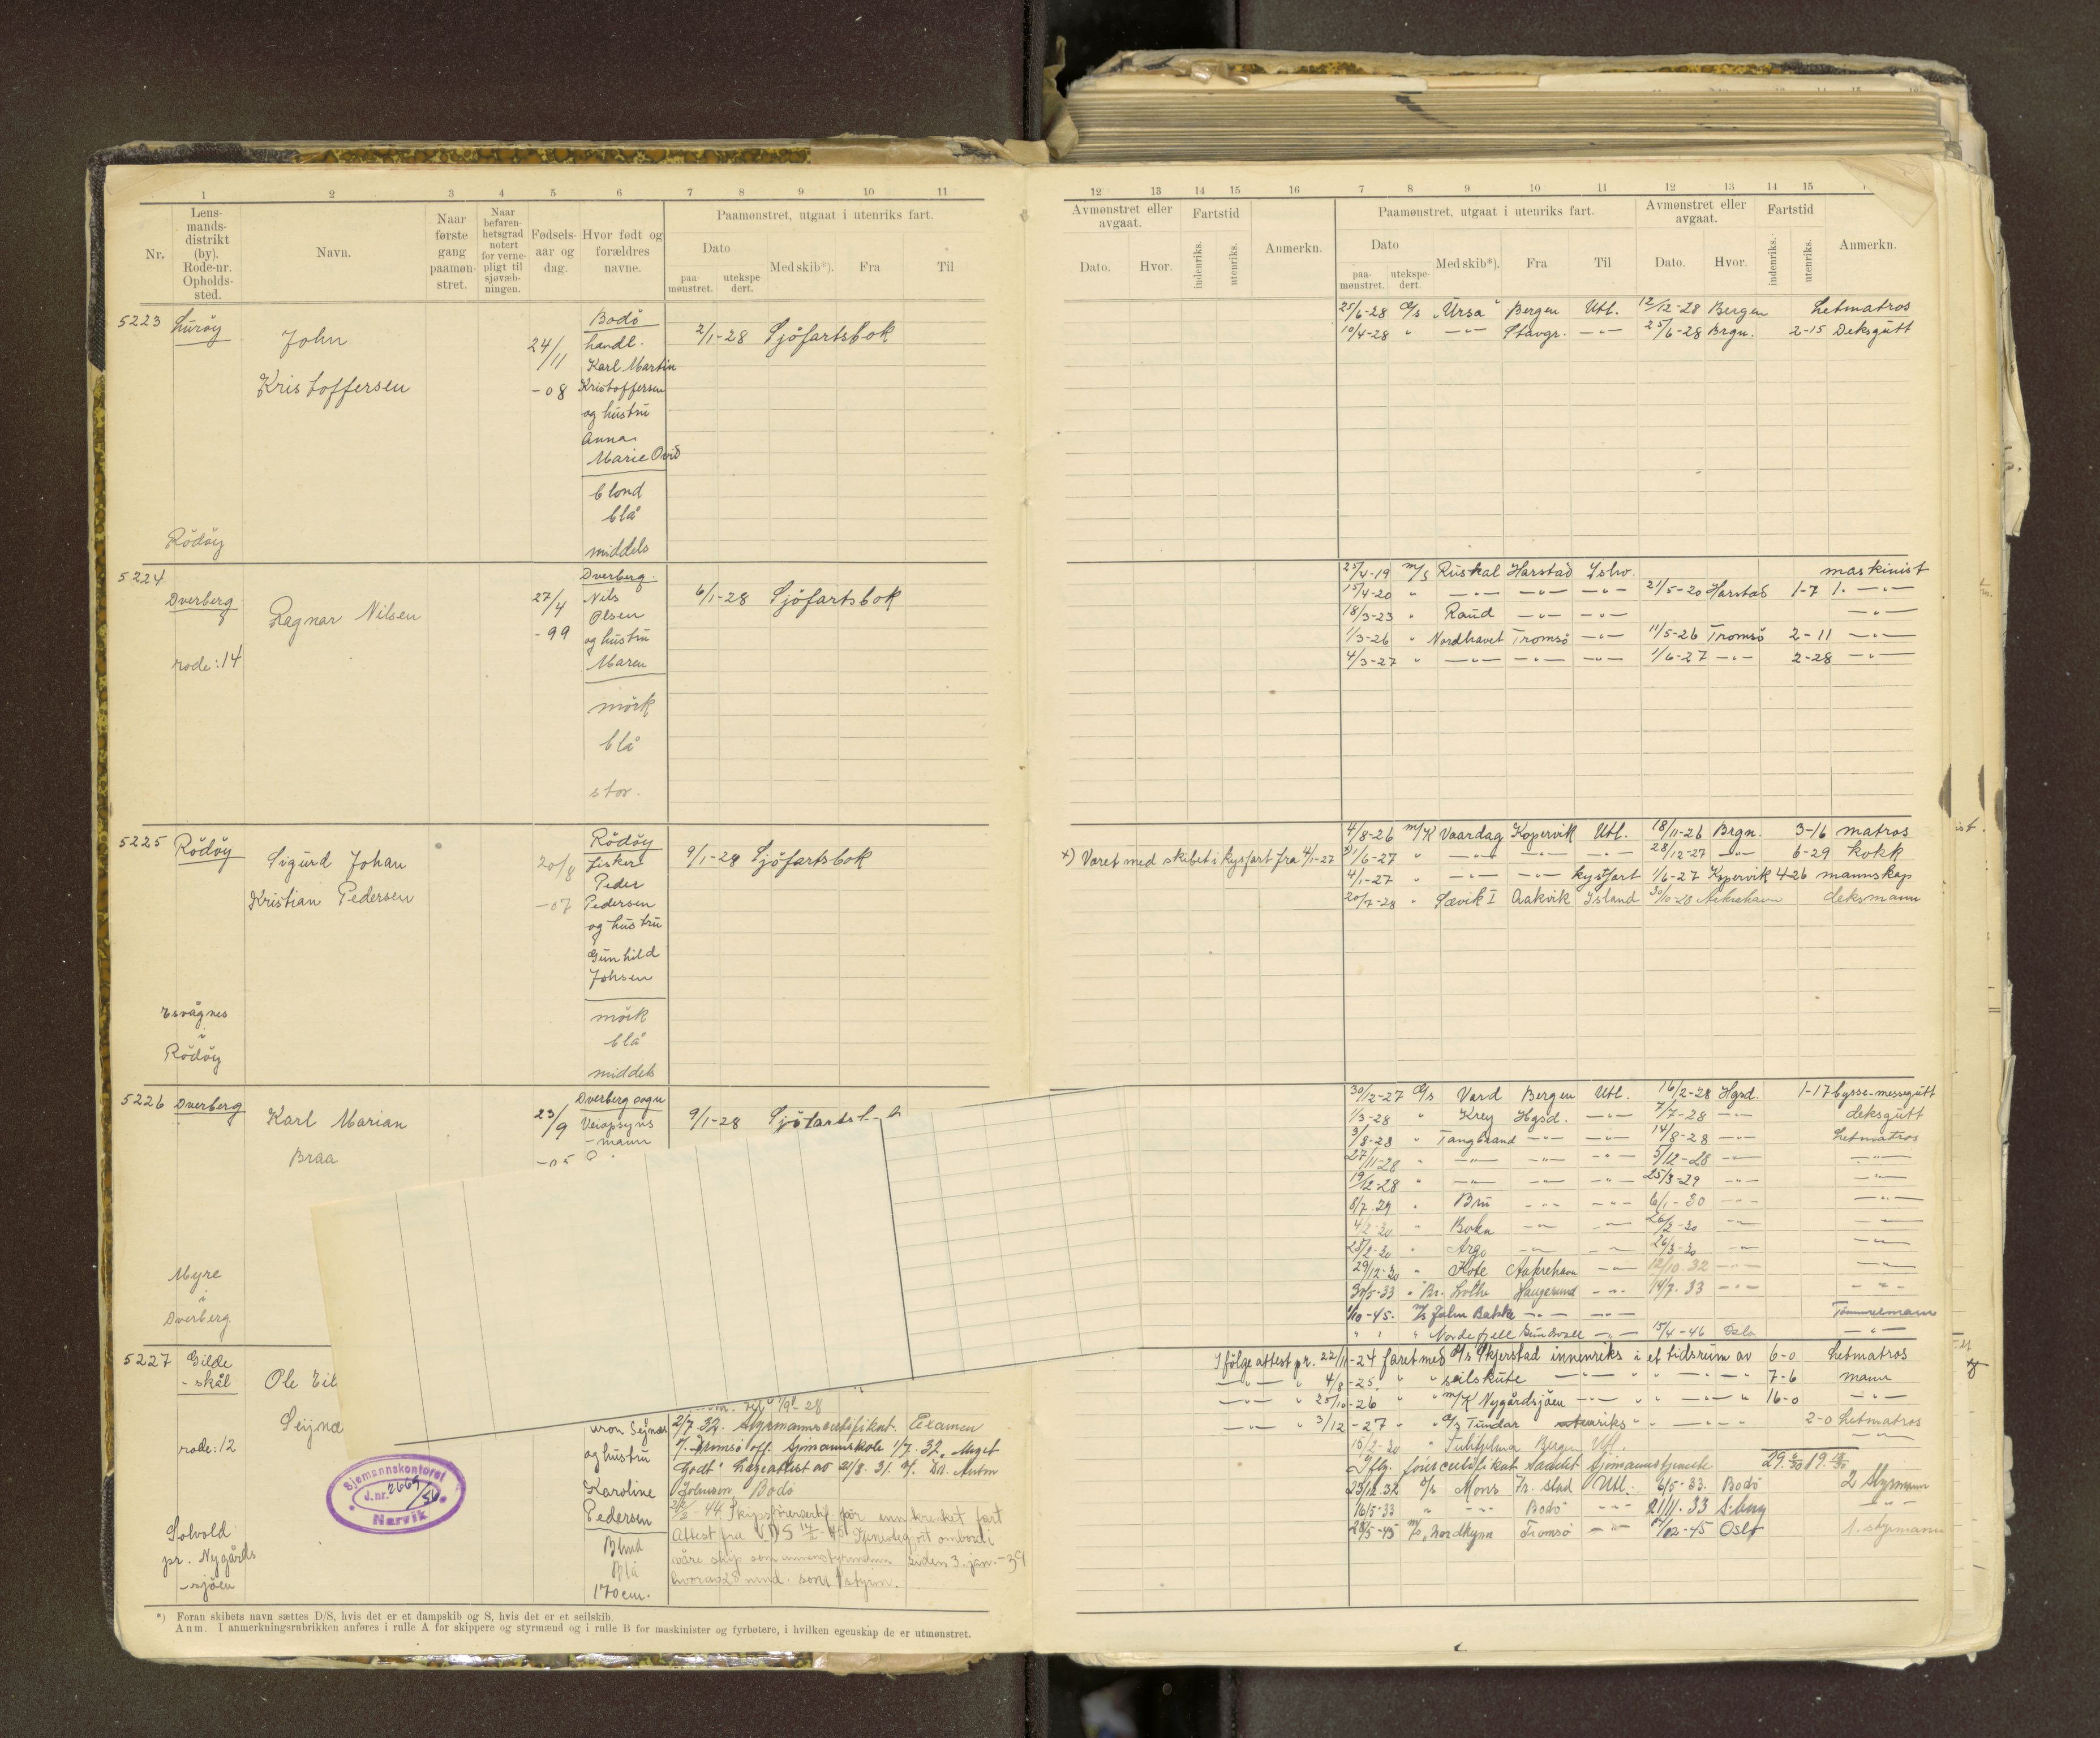 1 2 3 4 5 6 7 8 9 10 11
Nr.
Lens-
mands-
distrikt
(by).
Rode-nr.
Opholds-
sted.
Navn.
Naar
første
gang
paamøn-
stret.
Naar
befaren-
hetsgrad
notert
for verne-
pligt til
sjøvæb-
ningen.
Fødsels-
aar og
dag.
Hvor født og
forældres
navne.
Paamønstret, utgaat i utenriks fart.
Dato
paa-
mønstret.
utekspe-
dert.
Med skib*).
Fra
Til
5223
Luröy
John
Kristoffersen
24/11
-08
Bodö
handl.
Karl Martin
Kristoffersen
og hustru
Anna
Marie
blond
blå
middels
2/1-28 Sjöfartsbok
Rödöy
5224
Dverberg
rode: 14
Ragnar Nilsen
27/4
-99
Dverberg.
Nils
Olsen
og hustru
Maren
mörk
blå
stor.
6/1-28 Sjöfartsbok
5225
Rödöy
Sigurd Johan
Kristian Pedersen
20/8
-07
Rödöy
fisker
Peder
Pedersen
og hustru
Gunhild
Johsen
mörk
blå
middels
9/1-28 Sjöfartsbok
Esvågnes
i
Rödöy
5226
Dverberg
Karl Marian
Braa
23/9
-05
Dverberg sogn
Veiopsyns
-mann
9/1-28
Myre
i
Dverberg
5227
Gilde
-skål
rode: 12
Ole
og hustru
Karoline
Pedersen
Blond
Blå
170 cm.
2/7 32. Styrmannscertifikat. Examen
v. Tromsö off. Sjömannskole 1/7 32. Meget
Godt.
Johnsen, Bodö
Sjømannskontoret
J.nr. 2669/56
Narvik
Solvold
pr. Nygårds
-sjöen
siden 3. jan. -39
hvorav 28 mnd. som 1 styrm.
*) Foran skibets navn sættes D/S, hvis det er et dampskib og S, hvis det er et seilskib.
Anm. I anmerkningsrubrikken anføres i rulle A for skippere og styrmænd og i rulle B for maskinister og fyrbøtere, i hvilken egenskap de er utmønstret.
12 13 14 15 16 7 8 9 10 11 12 13 14 15
Avmønstret eller
avgaat.
Dato.
Hvor.
Fartstid
indenriks.
utenriks.
Anmerkn.
Paamønstret, utgaat i utenriks fart.
Dato
paa-
mønstret.
utekspe-
dert.
Med skib*).
Fra
Til
Avmønstret eller
avgaat.
Dato.
Hvor.
Fartstid
indenriks.
utenriks.
Anmerkn.
25/6-28 D/s „Ursa" Bergen Utl. 12/12-28 Bergen Letmatros
10/4-28 " —"— Stavgr. —"— 25/6-28 Brgn. 2-15 Deksgutt
25/4-19 M/s Ruskal Harstad Ishv. maskinist
15/4-20 " —"— —"— —"— 21/5-20 Harstad 1-7 1. —"—
18/3-23 " Raud —"— —"— —"—
1/3-26 " Nordhavet Tromsö —"— 11/5-26 Tromsö 2-11 —"—
4/3-27 " —"— —"— —"— 1/6-27 —"— 2-28 —"—
4/8-26 M/K Vaardag Kopervik Utl. 18/11-26 Brgn. 3-16 matros
x) Været med skibet i kysfart fra 4/1-27 x) 1/6-27 " —"— —"— —"— 28/12-27 —"— 6-29 kokk
4/1-27 " —"— —"— kystfart 1/6-27 Kopervik 4-26 mannskap
20/7-28 " Sævik I Aakvik Island 30/10-28 deksmann
30/12-27 D/s Vard Bergen Utl. 16/2-28 Hgsd. 1-17 bysse-messegutt
1/3-28 " Hgsd. —"— 7/7-28 —"— deksgutt
3/8-28 " Tangbrand —"— —"— 14/8-28 —"— Letmatros
27/11-28 " —"— —"— —"— 5/12-28 —"— —"—
19/12-28 " —"— —"— —"— 25/3-29 —"— —"—
8/7-29 " Bru —"— —"— 6/1-30 —"— —"—
4/2-30 " Bokn —"— —"— 26/2-30 —"— —"—
28/2-30 " Argo —"— —"— 26/3-30 —"— —"—
29/12-30 " Aakrehavn —"— 12/10-32 —"— —"—
30/5-33 " Haugesund —"— 14/7-33 —"— —"—
1/10-45. M/s John Bakke —"— —"— Tømmermann
" " " Nordefjell Sundsvall —"— 15/4-46 Oslo —"—
I fölge attest pr. 22/11-24 faret med D/s Skjerstad innenriks i et tidsrum av 6-0 Letmatros
—"— " 4/8-25. " " seilskute —"— " " —"— 7-6 mann
—"— " 25/10-26 " " M/K Nygårdsjöen —"— " " —"— " 16-0 —"—
—"— " 3/12-27 " " D/s Tundar utenriks " " —"— " 2-0 Letmatros
15/2-30 " Sulitjelma Bergen Utl. —"—
23/12 32 D/s Mons Fr. stad Utl. 6/5-33. Bodö 2 Styrmann
16/5-33 " —"— Bodö —"— 21/11.33 —"—
28/5-45 M/s „Nordkynn Tromsö —"— Oslo 1. styrmann